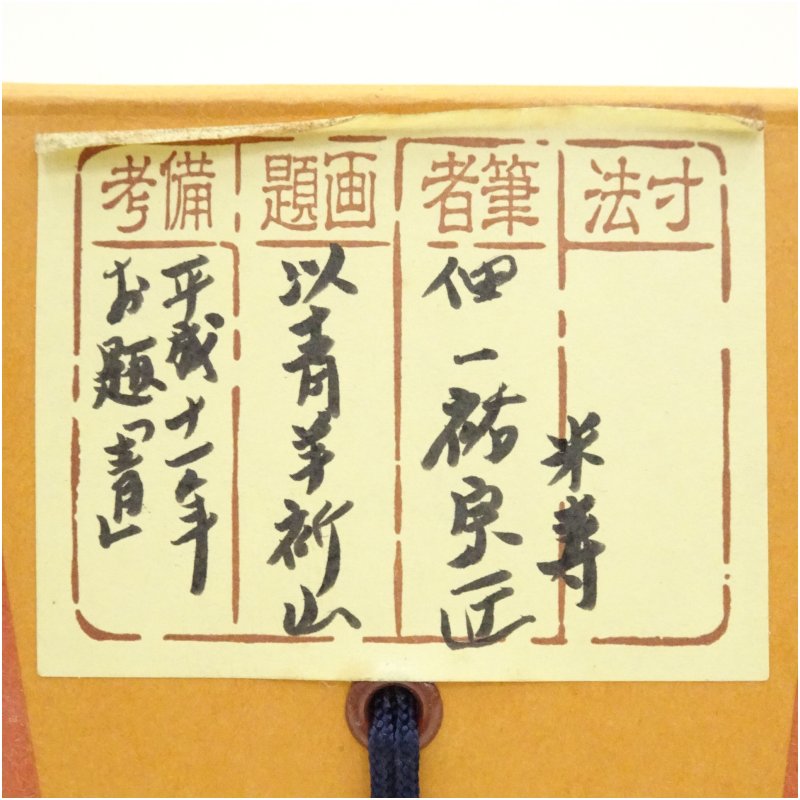 寸法
筆者
米寿
佃一祐宗匠
画題
以青羊祈山
備考
平成十一年
お題「青」